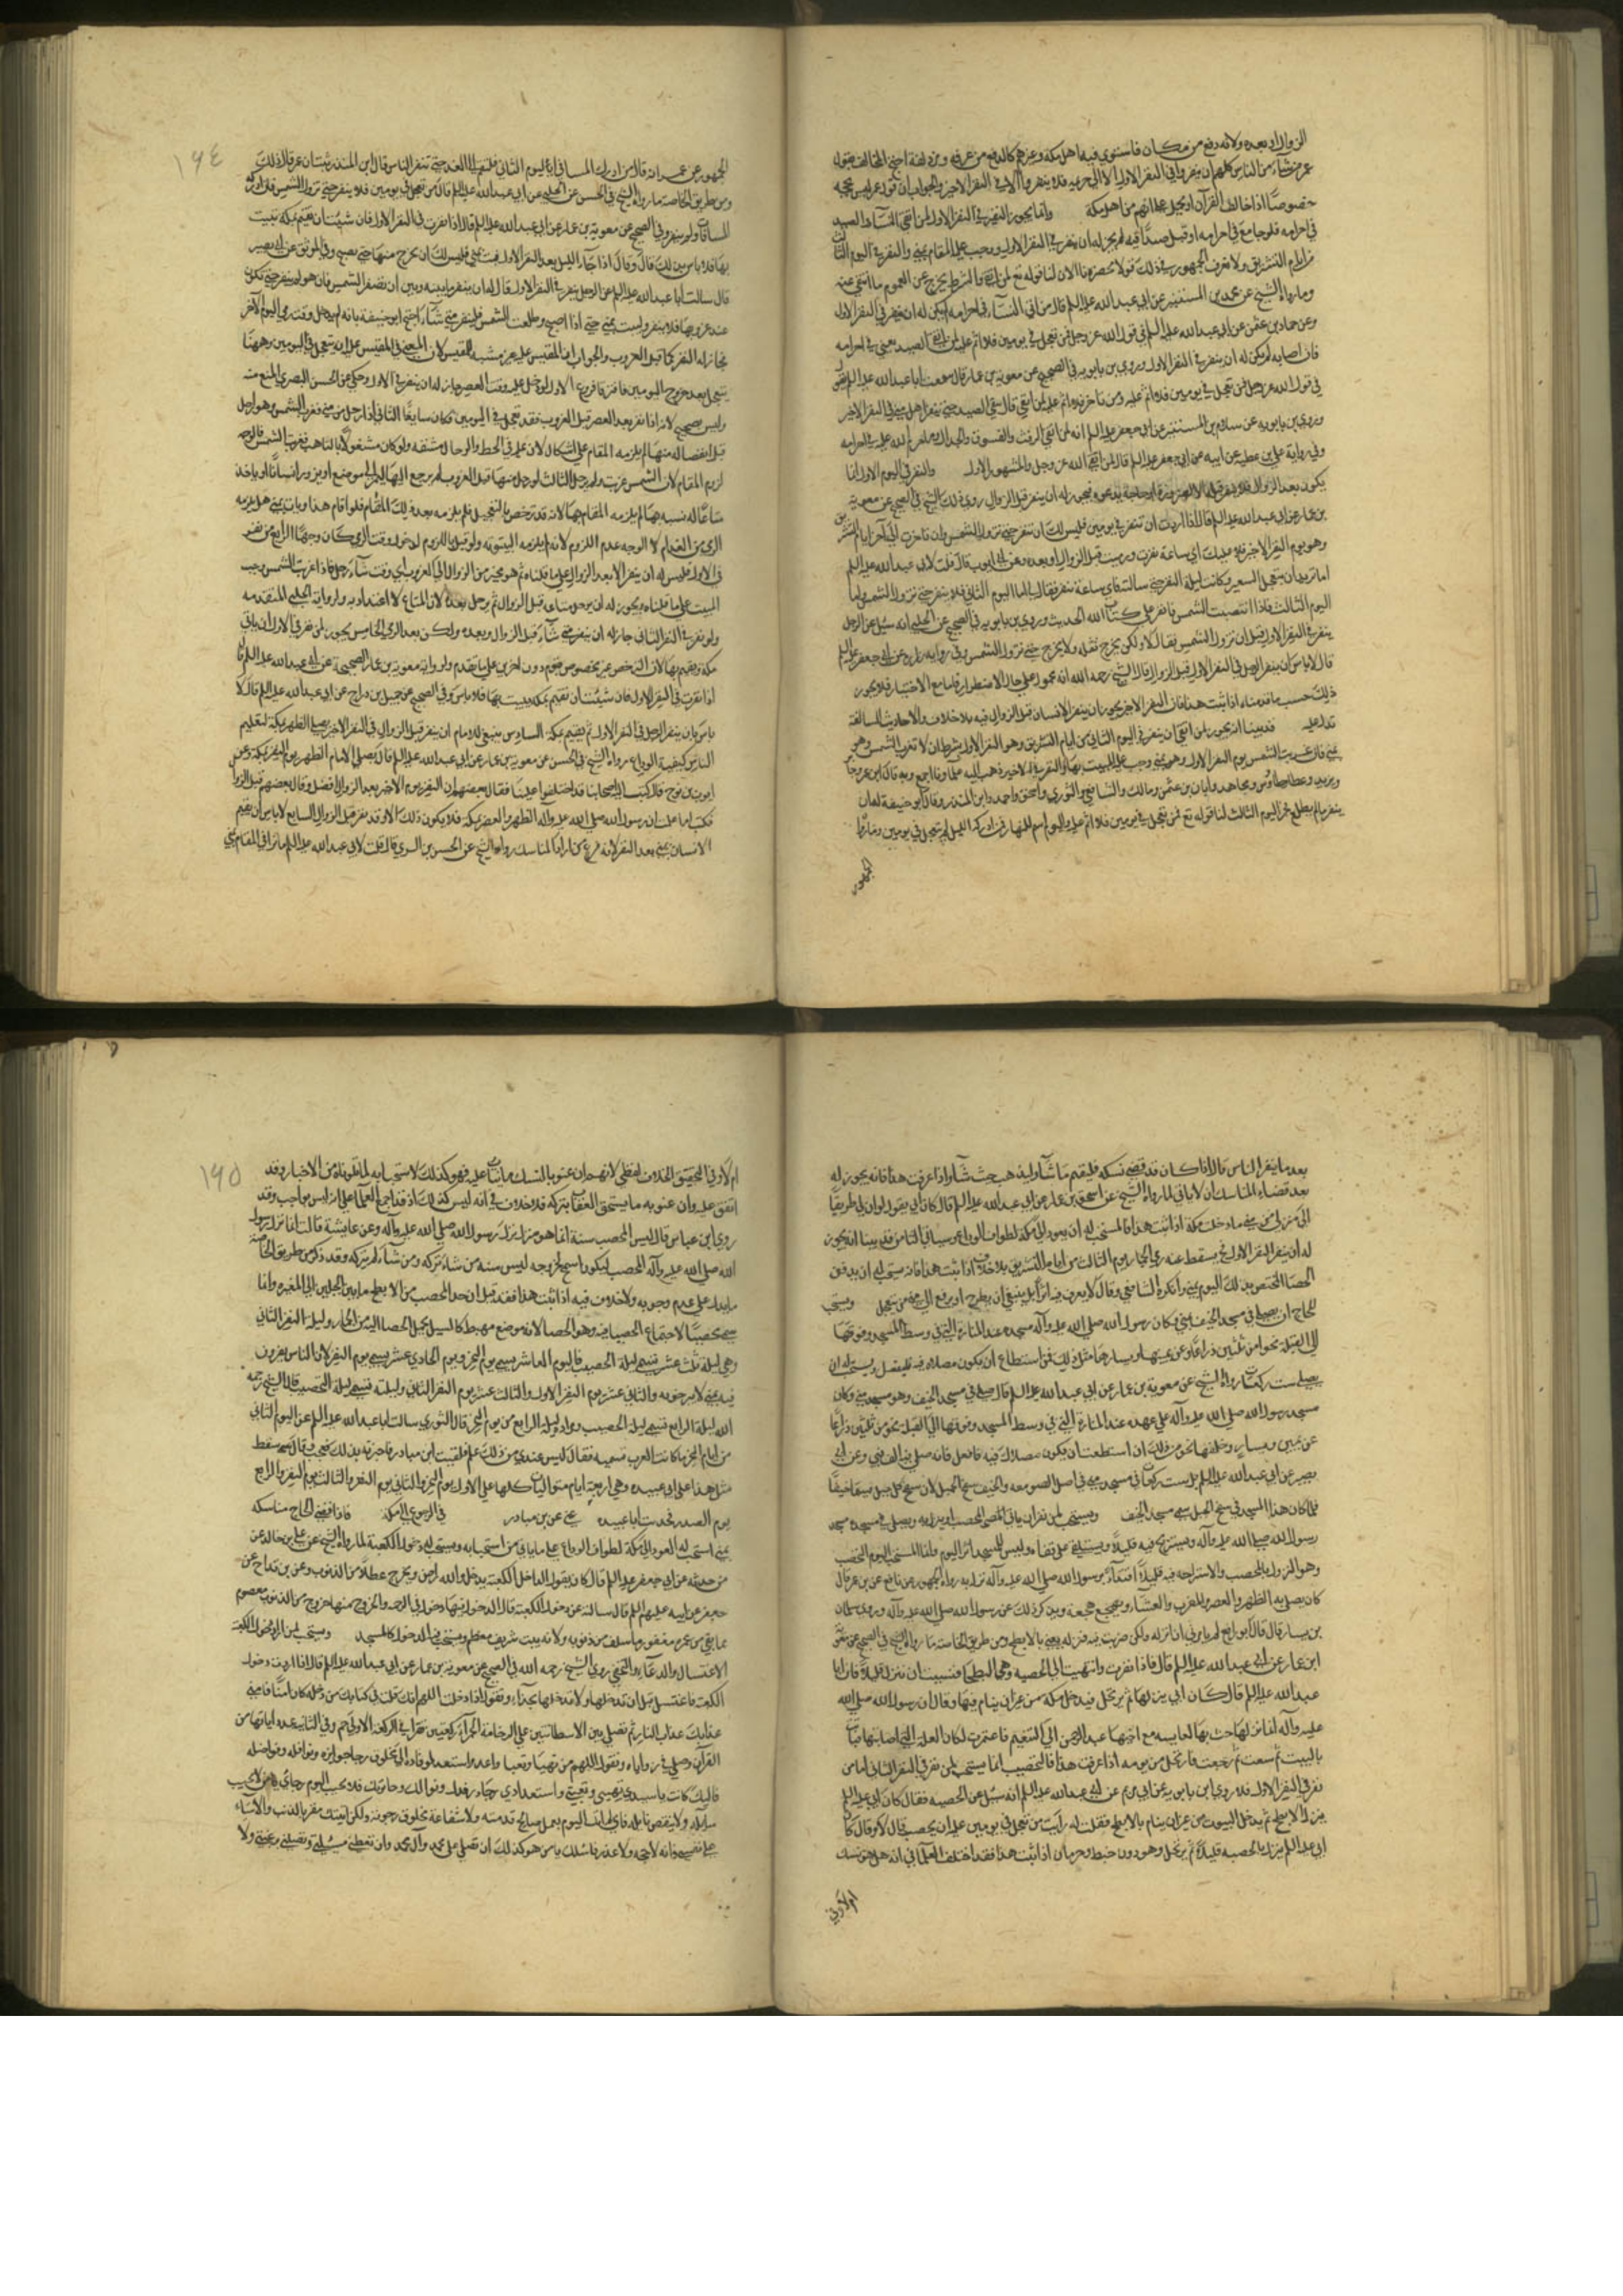 الزوال او بعده ولانه دفع من مكان فاستوى فيه اهل مكة وغيرهم كالدفع من عرفة ومزدلفة احتج المخالف بقول
عمر من شاء من الناس كلهم ان ينفروا في النفر الاول الا آل خزيمة فلا ينفروا الا في النفر الاخير والجواب ان قول عمر ليس بحجة
خصوصا اذا خالف القرآن او يحمل على انهم من اهل مكة وانما يجوز النفير في النفر الاول لمن اتقى النساء والصيد
في احرامه فلو جامع في احرامه او قتل صيدا فيه لم يجز له ان ينفر في النفر الاول ووجب عليه المقام بمنى والنفر في اليوم الثالث
من ايام التشريق ولا نعرف للجمهور في ذلك قولا محضرنا الان لنا قوله تع لمن اتقى والشرط يخرج عن العموم ما انتفى عنه
وما رواه الشيخ عن محمد بن المستنير عن ابي عبد الله عليه السلم قال من اتى النساء في احرامه لم يكن له ان ينفر في النفر الاول
وعن حماد بن عثمن عن ابي عبد الله عليه السلم في قول الله عز وجل فمن تعجل في يومين فلا اثم عليه لمن اتقى الصيد يعني في احرامه
فان اصابه لم يكن له ان ينفر في النفر الاول وروى بن بابويه في الصحيح عن معوية بن عمار قال سمعت ابا عبد الله عليه السلم يقول
في قول الله عز وجل فمن تعجل في يومين فلا اثم عليه ومن تاخر فلا اثم عليه لمن اتقى قال يتقي الصيد حتى ينفر اهل منى في النفر الاخير
وروى بن بابويه عن سلام بن المستنير عن ابي جعفر عليه السلم انه لمن اتقى الرفث والفسوق والجدال وما حرم الله عليه في احرامه
وفي رواية علي بن عطية عن ابيه عن ابي جعفر عليه السلم قال لمن اتقى الله عز وجل والمشهور الاول والنفر في اليوم الاول انما
يكون بعد الزوال فلا ينفر قبله الا لضرورة او حاجة تدعو فيجوز له ان ينفر قبل الزوال روى ذلك الشيخ في الصحيح عن معوية
بن عمار عن ابي عبد الله عليه السلم قال اذا اردت ان تنفر في يومين فليس لك ان تنفر حتى تزول الشمس وان تاخرت الى آخر ايام التشريق
وهو يوم النفر الاخير فلا عليك اي ساعة نفرت ورميت قبل الزوال او بعده وعن ابي ايوب قال قلت لابي عبد الله عليه السلم
انا نريد ان نتعجل السير وكانت ليلة النفر حين سالته فاي ساعة ننفر فقال لي اما اليوم الثاني فلا تنفر حتى تزول الشمس واما
اليوم الثالث فاذا انتصبت الشمس فانفر على كتاب الله الحديث وروى بن بابويه في الصحيح عن الحلبي انه سئل عن الرجل
ينفر في النفر الاول قبل ان تزول الشمس فقال لا ولكن يخرج ثقله ولا يخرج حتى تزول الشمس وفي رواية زرارة عن ابي جعفر عليه السلم
قال لا باس ان ينفر الرجل في النفر الاول قبل الزوال قال الشيخ رحمه الله انه محمول على حال الاضطرار فاما مع الاختيار فلا يجوز
ذلك حسب ما قدمناه اذا ثبت هذا فان النفر الاخير يجوز ان ينفر الانسان قبل الزوال فيه بلا خلاف والاحاديث السالفة
تدل عليه قد بينا انه يجوز لمن اتقى ان ينفر في اليوم الثاني من ايام التشريق وهو النفر الاول بشرط ان لا تغرب الشمس وهو
بمنى فان غربت الشمس يوم النفر الاول وهو بمنى وجب عليه المبيت بها والنفر في الاخير ذهب اليه علماؤنا اجمع وبه قال ابن عمر وجابر
بن زيد وعطا وطاوس ومجاهد وابان بن عثمن ومالك والشافعي والثوري واسحق واحمد وابن المنذر وقال ابو حنيفة له ان
ينفر ما لم يطلع فجر اليوم الثالث لنا قوله تع فمن تعجل في يومين فلا اثم عليه واليوم اسم للنهار فمن ادركه الليل لم يتعجل في يومين وما رواه
الجمهور
١٩٤
الجمهور عن عمر انه قال من ادركه المساء في اليوم الثاني فليقم الى الغد حتى تنفر الناس قال ابن المنذر ثبت ان عمر قال ذلك
ومن طريق الخاصة ما رواه الشيخ في الحسن عن الحلبي عن ابي عبد الله عليه السلم قال من تعجل في يومين فلا ينفر حتى تزول الشمس فان ادركه
المساء بات ولم ينفر وفي الصحيح عن معوية بن عمار عن ابي عبد الله عليه السلم قال اذا نفرت في النفر الاول فان شئت ان تقيم بمكة تبيت
بها فلا باس بذلك قال وقال اذا جاء الليل بعد النفر الاول فبت بمنى فليس لك ان تخرج منها حتى تصبح وفي الموثق عن ابي بصير
قال سالت ابا عبد الله عليه السلم عن الرجل ينفر في النفر الاول قال له ان ينفر ما بينه وبين ان تصفر الشمس فان هو لم ينفر حتى يكون
عند غروبها فلا ينفر وليبت بمنى حتى اذا اصبح وطلعت الشمس فلينفر متى شاء احتج ابو حنيفة بانه لم يدخل وقت رمي اليوم الآخر
فجاز له النفر كما قبل الغروب والجواب ان المقيس عليه غير مشبه للمقيس لان المعنى في المقيس عليه انه تعجل في اليومين وههنا
يتعجل بعد خروج اليومين فافترقا فروع الاول لو دخل عليه وقت العصر جاز له ان ينفر في الاول وحكي عن الحسن البصري المنع منه
وليس بصحيح لانه اذا نفر بعد العصر قبل الغروب فقد تعجل في اليومين فكان سايغا الثاني اذا رحل من منى فغربت الشمس وهو راحل
قبل انفصاله منها لم يلزمه المقام على اشكال لان عليه في الحط والرحال مشقة ولو كان مشغولا بالتاهب فغربت الشمس فالوجه
لزوم المقام لان الشمس غربت ولم يرحل الثالث لو رحل منها قبل الغروب ثم رجع اليها لاخذ
متاعا له نسيه بها لم يلزمه المقام بها لانه قد ترخص بالتعجيل فلم يلزمه بعد ذلك المقام فلو اقام هذا وبات بمنى هل يلزمه
الرمي من الغد ام لا الوجه عدم اللزوم لانه لم يلزمه البيتوتة ولو قيل باللزوم لدخول وقت الرمي كان وجها الرابع من نفر
في الاول فليس له ان ينفر الا بعد الزوال على ما قلناه ثم هو مخير من الزوال الى الغروب اي وقت شاء رحل فاذا غربت الشمس وجب
المبيت على ما قلناه ويجوز له ان يرحل متاعه قبل الزوال ثم يرحل بعده لان المتاع لا اعتداد به ولرواية الحلبي المتقدمة
ولو نفر في النفر الثاني جاز له ان ينفر متى شاء قبل الزوال وبعده ولكن بعد الرمي الخامس يجوز لمن نفر في الاول ان ياتي
مكة ويقيم بها لان الترخص غير مخصوص بقوم دون اخرين على ما تقدم ولرواية معوية بن عمار الصحيحة عن ابي عبد الله عليه السلم قال
اذا نفرت في النفر الاول فان شئت ان تقيم بمكة وتبيت بها فلا باس وفي الصحيح عن جميل بن دراج عن ابي عبد الله عليه السلم قال لا
باس بان ينفر الرجل في النفر الاول ثم يقيم بمكة السادس ينبغي للامام ان ينفر قبل الزوال في النفر الاخير يصلي الظهر بمكة ليعلم
الناس كيفية الوداع رواه الشيخ في الحسن عن معوية بن عمار عن ابي عبد الله عليه السلم قال يصلي الامام الظهر يوم النفر بمكة وعن
ايوب بن نوح قال كتبت اليه ان اصحابنا قد اختلفوا علينا فقال بعضهم ان النفر يوم الاخير بعد الزوال افضل وقال بعضهم قبل الزوال
فكتب اما علمت ان رسول الله صلى الله عليه وآله صلى الظهر والعصر بمكة فلا يكون ذلك الا وقد نفر قبل الزوال السابع لا باس ان يقيم
الانسان بمنى بعد النفر لانه فرغ من اداء المناسك رواه الشيخ عن الحسن بن السري قال قلت لابي عبد الله عليه السلم ما ترى في المقام بمنى
بعد ما ينفر الناس قال اذا كان قد قضى نسكه فليقم ما شاء وليذهب حيث شاء اذا عرفت هذا فانه يجوز له
بعد قضاء المناسك ان لا ياتي لما رواه الشيخ عن اسحق بن عمار عن ابي عبد الله عليه السلم قال كان ابي يقول لو ان لي طريقا
الى منزلي من منى ما دخلت مكة اذا ثبت هذا فالمستحب له ان يعود الى مكة لطواف الوداع وسياتي الثامن قد بينا انه يجوز
له ان ينفر النفر الاول فح يسقط عنه رمي الجمار يوم الثالث من ايام التشريق بلا خلاف اذا ثبت هذا فانه يستحب له ان يدفن
الحصا المختص بذلك اليوم بمنى وانكره الشافعي وقال لا يعرف فيه اثرا بل ينبغي ان يطرح او يدفع الى من لم يتعجل ويستحب
للحاج ان يصلي في مسجد الخيف بمنى وكان رسول الله صلى الله عليه وآله مسجده عند المنارة التي في وسط المسجد وفوقها
الى القبلة نحوا من ثلثين ذراعا وعن يمينها ويسارها مثل ذلك فمن استطاع ان يكون مصلاه فيه فليفعل ويستحب له ان
يصلي ست ركعات رواه الشيخ عن معوية بن عمار عن ابي عبد الله عليه السلم قال صلى في مسجد الخيف وهو مسجد منى وكان
مسجد رسول الله صلى الله عليه وآله على عهده عند المنارة التي في وسط المسجد وفوقها الى القبلة نحو من ثلثين ذراعا
عن يمين ويسار وخلفها نحو من ذلك ان استطعت ان يكون مصلاك فيه فافعل فانه صلى فيه الف نبي وعن ابي
بصير عن ابي عبد الله عليه السلم صل ست ركعات في مسجد منى في اصل الصومعة والخيف سفح الجبل لان سفح كل جبل يسمى خيفا
فلما كان هذا المسجد في سفح الجبل سمي مسجد الخيف ويستحب لمن نفر ان ياتي المحصب وينزل به ويصلي في مسجده مسجد
رسول الله صلى الله عليه وآله ويستريح فيه قليلا ويستلقي على قفاه وليس للمسجد اثر اليوم وانما المستحب اليوم التحصيب
وهو النزول بالمحصب والاستراحة فيه قليلا اقتداء برسول الله صلى الله عليه وآله نزل به رواه الجمهور عن نافع عن بن عمر قال
كان يصلي به الظهر والعصر والمغرب والعشاء ويهجع هجعة ويذكر ذلك عن رسول الله صلى الله عليه وآله وروى سلمان
بن يسار قال قال ابو رافع لم يامرني ان انزله ولكن ضربت فيه فنزله يعني بالابطح ومن طريق الخاصة ما رواه الشيخ في الصحيح عن معوية
ابن عمار عن ابي عبد الله عليه السلم قال فاذا نفرت وانتهيت الى الحصبة وهي البطحا فشئت ان تنزل قليلا فان ابا
عبد الله عليه السلم قال كان ابي ينزلها ثم يرتحل فيدخل مكة من غير ان ينام فيها وقال ان رسول الله صلى الله
عليه وآله انما نزلها حيث بعث بها لعايشة مع اخيها عبد الرحمن الى التنعيم فاعتمرت لمكان العلة التي اصابتها فطافت
بالبيت ثم سعت ثم رجعت فارتحل من يومه اذا عرفت هذا فالتحصيب انما يستحب لمن نفر في النفر الثاني اما من
نفر في النفر الاول فلا روى ابن بابويه عن ابي مريم عن ابي عبد الله عليه السلم انه سئل عن الحصبة فقال كان ابي عليه السلم
ينزل الابطح ثم يدخل البيوت من غير ان ينام بالابطح فقلت له ارايت من تعجل في يومين عليه ان يحصب قال لا وقال كان
ابي عليه السلم ينزل بالحصبة قليلا ثم يرتحل وهو دون خبط وحرمان اذا ثبت هذا فقد اختلف العلما في انه هل هو نسك
ام لا وفي
١٩٥
ام لا وفي التحقيق الخلاف لفظي لانهم ان عنوا بالنسك ما يثاب عليه فهو كذلك لاستحبابه لما تلوناه من الاخبار وقد
اتفق عليه وان عنوا به ما يستحق العقاب بتركه فلا خلاف في انه ليس كذلك اذ قد اجمع العلما على انه ليس بواجب وقد
روى ابن عباس قال ليس المحصب سنة انما هو منزل نزله رسول الله صلى الله عليه وآله وعن عايشة قالت انما نزل رسول
الله صلى الله عليه وآله المحصب ليكون اسمح لخروجه ليس سنة من شاء تركه ومن شاء لم يتركه وقد ذكر من طريق الخاصة
ما يدل على عدم وجوبه ولا خلاف فيه اذا ثبت هذا فقد قيل ان حد المحصب من الابطح ما بين الجبلين الى المقبرة وانما
سمي محصبا لاجتماع الحصبا فيه وهو الحصا لانه موضع منهبط كالسيل يحمل الحصا اليه من الجمار وليلة النفر الثاني
وهي ليلة ثلث عشر تسمى ليلة الحصيب فاليوم العاشر يسمى يوم النحر ويوم الحادي عشر يسمى يوم النفر لان الناس يقرون
فيه بمنى لا يبرحونه والثاني عشر يوم النفر الاول والثالث عشر يوم النفر الثاني وليلته تسمى ليلة التحصيب قال الشيخ رحمه
الله ليلة الرابع تسمى ليلة الحصيب وارادليلة الرابع من يوم النحر قال الثوري سالت ابا عبيدة عن اليوم الثاني
من ايام النحر ما كانت العرب تسميه فقال ليس عندي من ذلك علم فلقيت ابن مبادر فاخبرته بذلك فعجب وقال سقط
مثل هذا على ابي عبيدة وهي اربعة ايام متواليات كلها على الاول يوم النحر والثاني يوم القر والثالث يوم النفر والرابع
يوم الصدر فحدثت ابا عبيدة عن بن مبادر في الرجوع الى مكة فاذا قضى الحاج مناسكه
بمنى استحب له العود الى مكة لطواف الوداع على ما ياتي من استحبابه ويستحب له دخول الكعبة لما رواه الشيخ عن علي بن خالد عن
من حدثه عن ابي جعفر عليه السلم قال كان يقول الداخل الكعبة يدخل والله راض ويخرج عطلا من الذنوب وعن بن قداح عن
جعفر عن ابيه عليهم السلم قال سالته عن دخول الكعبة قال الدخول فيها دخول في رحمة الله والخروج منها خروج من الذنوب معصوم
فيما بقي من عمره مغفور ما سلف من ذنوبه ولانه بيت شريف معظم فيستحب فيه الدخول كالمسجد ويستحب لمن اراد دخول الكعبة
الاغتسال والدعاء والتحفي روى الشيخ رحمه الله في الصحيح عن معوية بن عمار عن ابي عبد الله عليه السلم قال اذا اردت دخول
الكعبة فاغتسل قبل ان تدخلها ولا تدخلها بحذاء وتقول اذا دخلت اللهم انك قلت في كتابك من دخله كان امنا فامني
عذابك عذاب النار ثم تصلي بين الاسطوانتين على الرخامة الحمراء ركعتين تقرا في الركعة الاولى حم وفي الثانية عدد اياتها من
القرآن وصل في زواياه وتقول اللهم من تهيا وتعبا واعد واستعد لوفادة الى مخلوق رجا جوايزه ونوافله وفواضله
فاليك كانت يا سيدي تهيئتي وتعبيتي واستعدادي رجاء رفدك ونوالك وجايزتك فلا تخيب اليوم رجائي يا من لا يخيب
سايله ولا ينقص نايله فاني لم اتك اليوم بعمل صالح قدمته ولا شفاعة مخلوق رجوته ولكن اتيتك مقرا بالذنب والاساءة
على نفسي فانه لا حجة لي ولا عذر فاسئلك يا من هو كذلك ان تصلي على محمد وآل محمد وان تعطيني مسئلتي وتقبلني برغبتي ولا